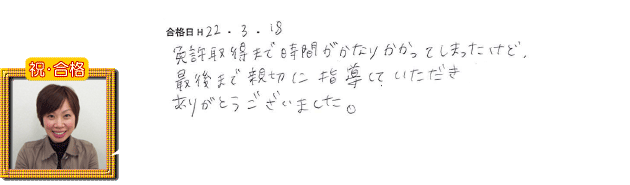 合格日 H22.3.18
免許取得まで時間がかなりかかってしまったけど、
最後まで親切に指導していただき
ありがとうございました。
祝・合格